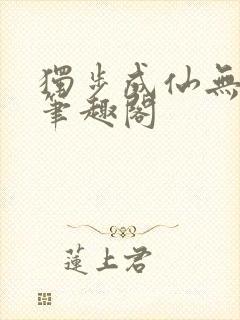 獨步成仙無
筆趣閣
蓮上君